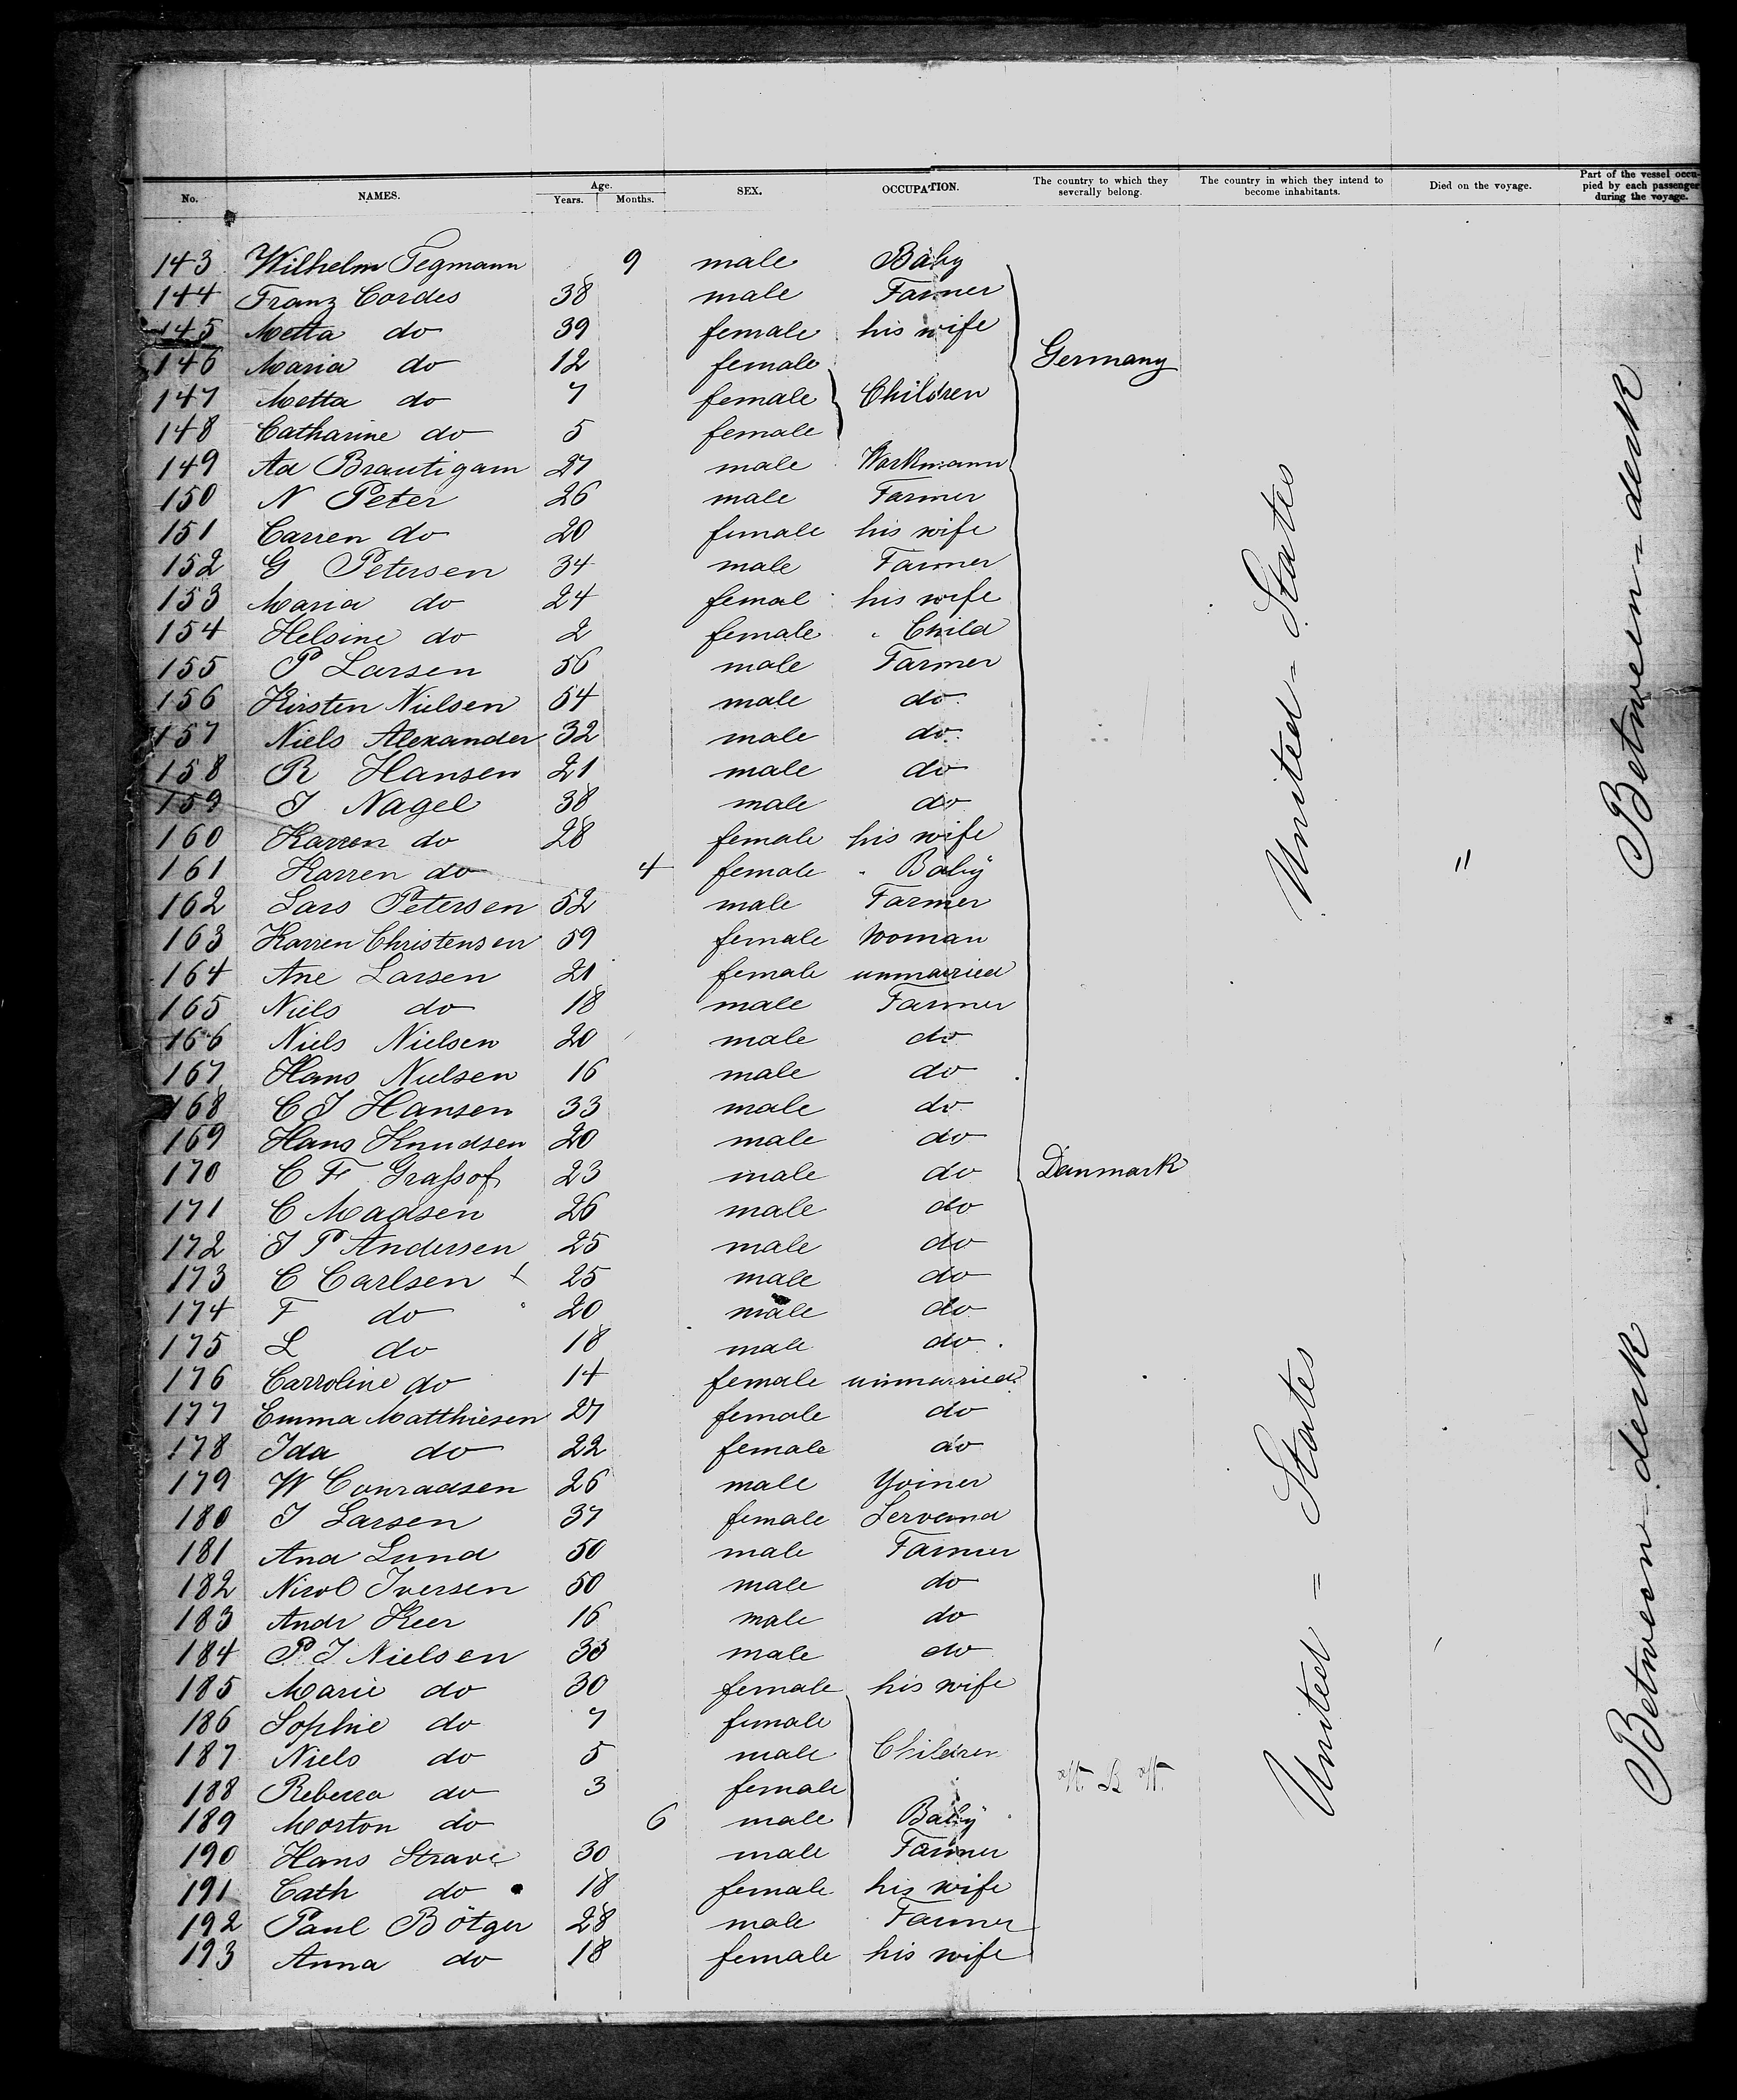 No. NAMES. Age. Years. Months. SEX. OCCUPATION. The country to which they severally belong. The country in which they intend to become inhabitants. Died on the voyage. Part of the vessel occupied by each passenger during the voyage.
143 Wilhelm Tegmann 9 male Baby
144 Franz Cordes 38 male Farmer
145 Metta do 39 female his wife
146 Maria do 12 female Germany
147 Metta do 7 female Children
148 Catharine do 5 female
149 Ad Brautigam 27 male Workmann
150 N Peter 26 male Farmer
151 Carren do 20 female his wife
152 G Petersen 34 male Farmer
153 Maria do 24 femal his wife
154 Helsine do 2 female Child
155 P Larsen 56 male Farmer
156 Kirsten Nielsen 54 male do
157 Niels Alexander 32 male do
158 R Hansen 21 male do
159 J Nagel 38 male do
160 Karren do 28 female his wife
161 Karren do 4 female Baby "
162 Lars Petersen 52 male Farmer
163 Karren Christensen 59 female Woman
164 Ane Larsen 21 female unmarried
165 Niels do 18 male Farmer
166 Niels Nielsen 20 male do
167 Hans Nielsen 16 male do
168 C J Hansen 33 male do
169 Hans Knudsen 20 male do
170 C F Graßof 23 male do Danmark
171 C Madsen 26 male do
172 J P Andersen 25 male do
173 C Carlsen 25 male do
174 F do 20 male do
175 L do 18 male do
176 Carroline do 14 female unmarried
177 Emma Matthiesen 27 female do
178 Ida do 22 female do
179 W Conradsen 26 male Yoiner
180 J Larsen 37 female Servand
181 And Lund 50 male Farmer
182 Nicol Iversen 50 male do
183 Andr Keer 16 male do
184 P J Nielsen 33 male do
185 Marie do 30 female his wife
186 Sophie do 7 female
187 Niels do 5 male Children
188 Rebecca do 3 female
189 Morton do 6 male Baby
190 Hans Strave 30 male Farmer
191 Cath do 18 female his wife
192 Paul Bötger 28 male Farmer
193 Anna do 18 female his wife
United - States
United = States
Between-derk
Between-derk